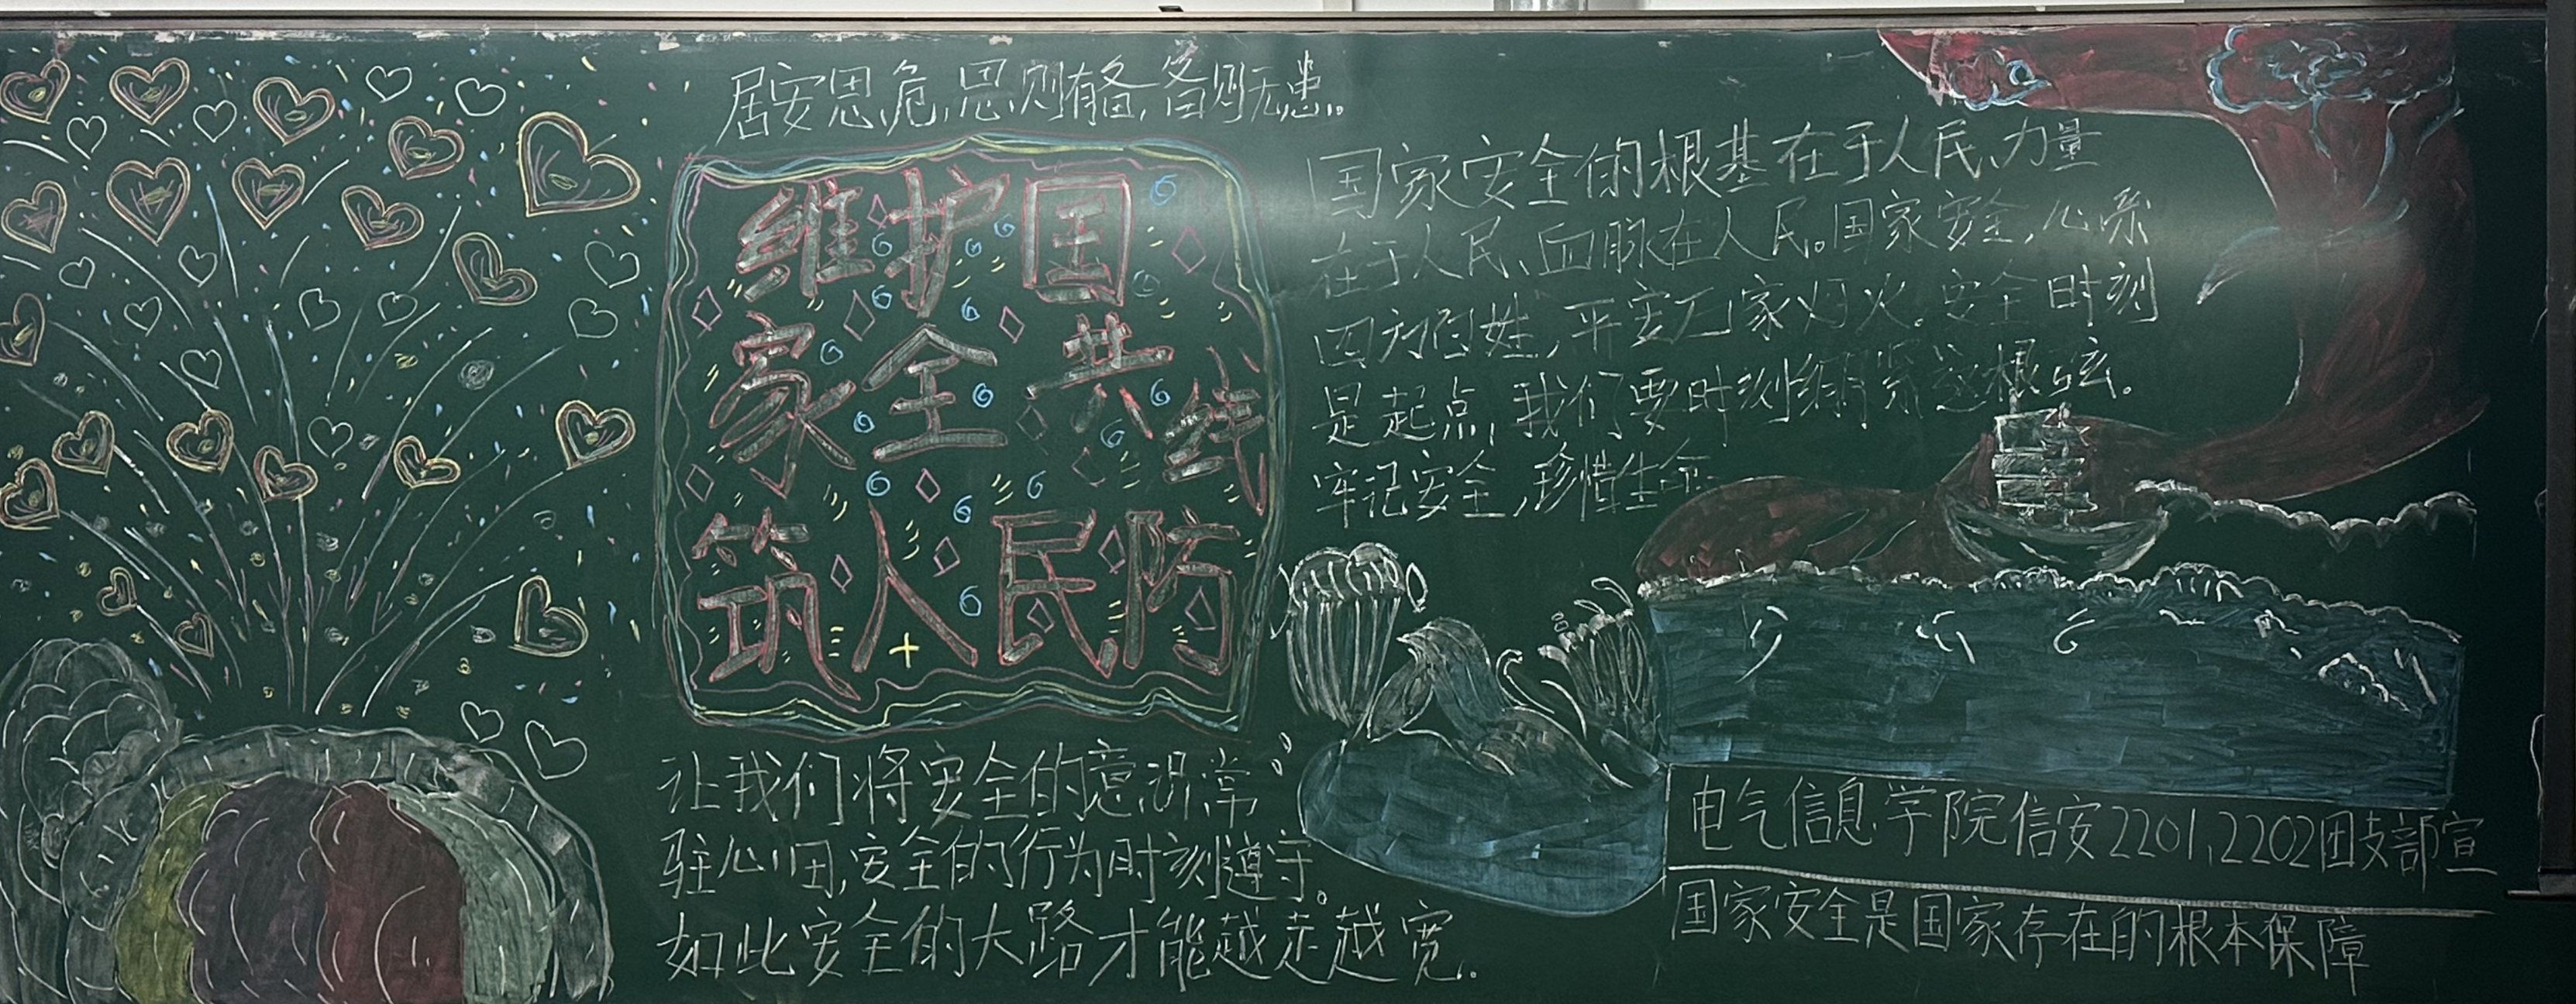 居安思危,思则有备,备则无患。
维护国
家全共线
筑人民防
国家安全的根基在于人民、力量
在于人民、血脉在人民。国家安全,心系
四方百姓,平安万家灯火。安全时刻
是起点,我们要时刻绷紧这根弦。
牢记安全,珍惜生命
让我们将安全的意识常
驻心田,安全的行为时刻遵守。
如此安全的大路才能越走越宽.
电气信息学院信安2201、2202团支部宣
国家安全是国家存在的根本保障